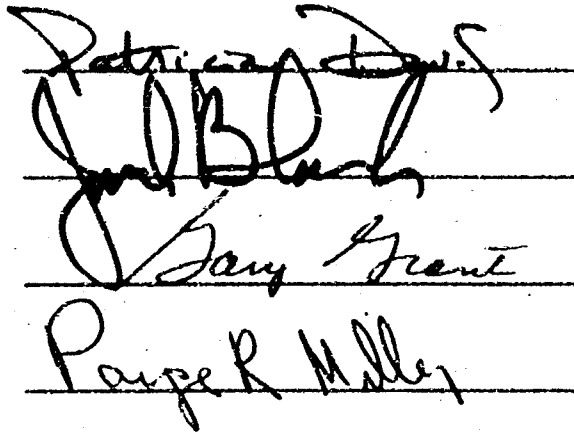 Patricia Davis
B
Gary Grant
Paige R Miller